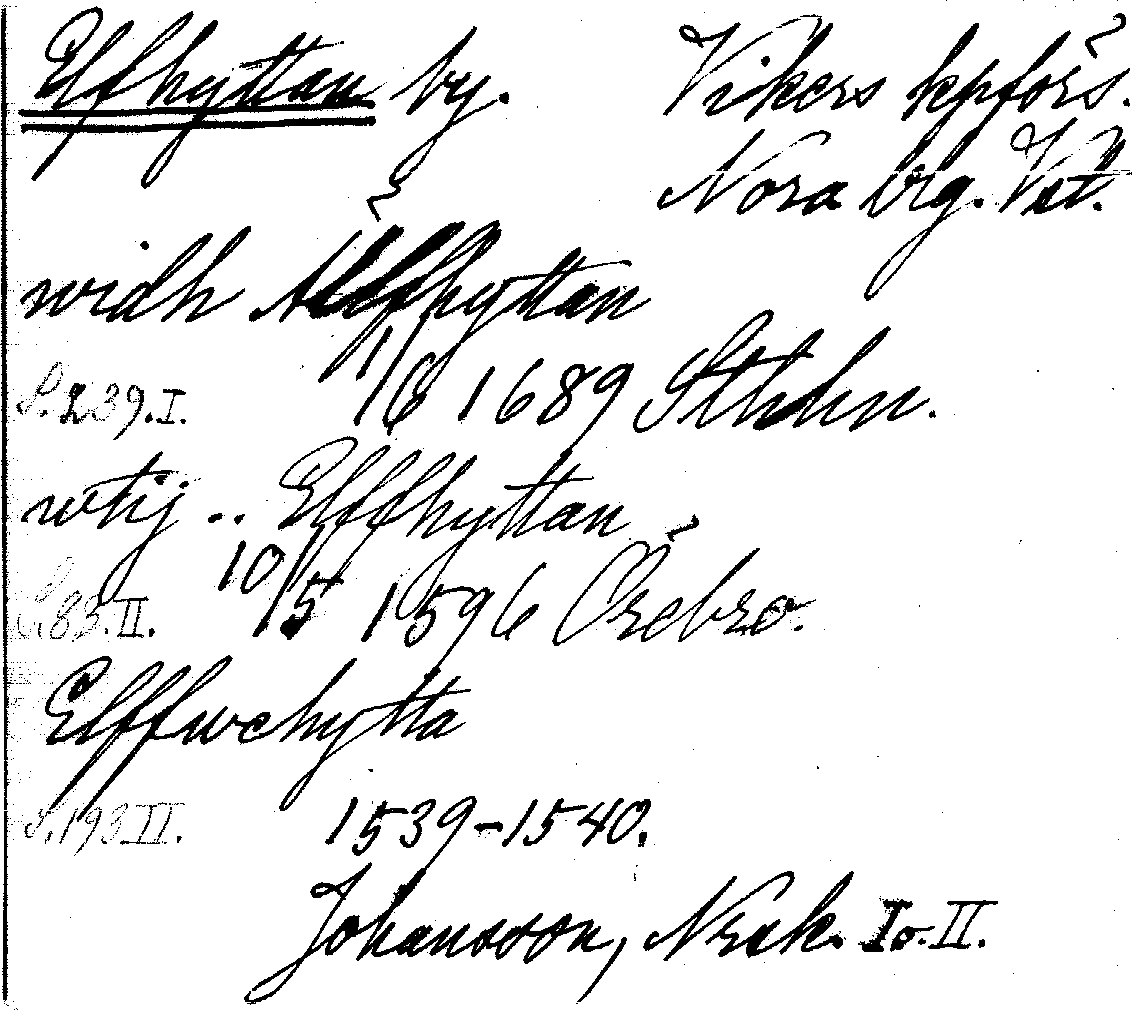 Elfhyttan by. Vikers kpförs.
Nora brg. Vstm.
widh Älfhyttan
S. 239. I. 1/6 1689 Sthlm.
wtij .. Elffhyttan
S. 83. II. 10/5 1596 Örebro.
Elffwehytta
S. 193 II. 1539-1540.
Johansson, Norask. I o. II.